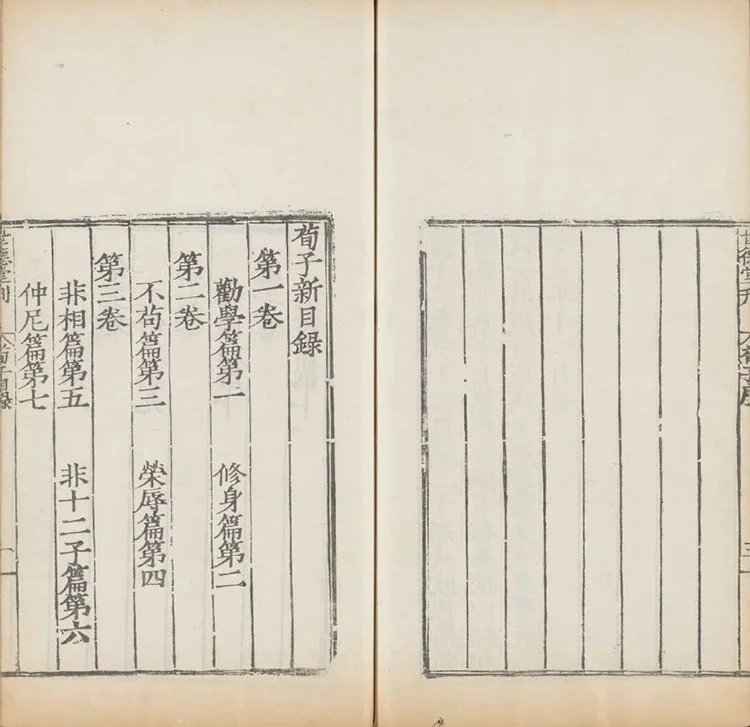 世德堂刊
荀子序
三
荀子新目錄
第一卷
勸學篇第一 修身篇第二
第二卷
不茍篇第三 榮辱篇第四
第三卷
非相篇第五 非十二子篇第六
仲尼篇第七
世德堂刊
荀子目錄
一